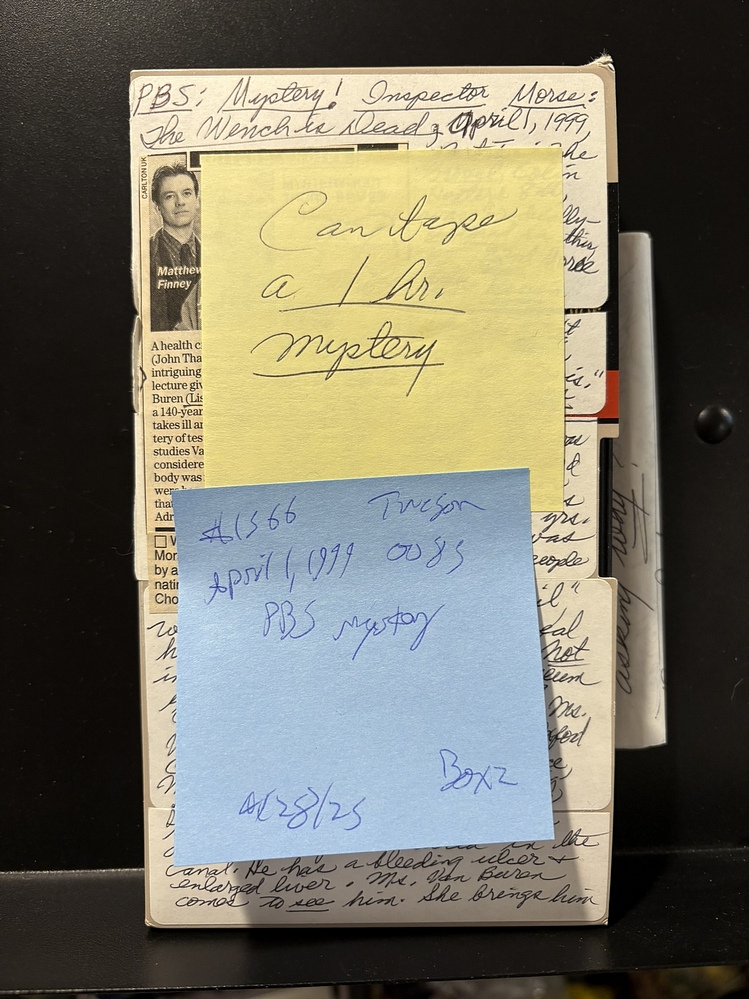 PBS: Mystery! Inspector Morse:
The Wench is Dead, April 1, 1999,
he
in
CARLTON UK
lly-
this,
Matthew
Finney
Can tape
a 1 hr.
mystery
A health c
(John Tha
intriguing
lecture giv
Buren (Lis
a 140-year
takes ill an
tery of tes
studies Va
considere
body was
that
Adr
is."
yrs.
was
people
Mor
by a
natin
Cho
#1566 Tucson
April 1, 1999 0083
PBS mystery
4/28/25 Box 2
il"
not
Ms.
in the
Canal. He has a bleeding ulcer +
enlarged liver. Ms. Van Buren
comes to see him. She brings him
asking why?